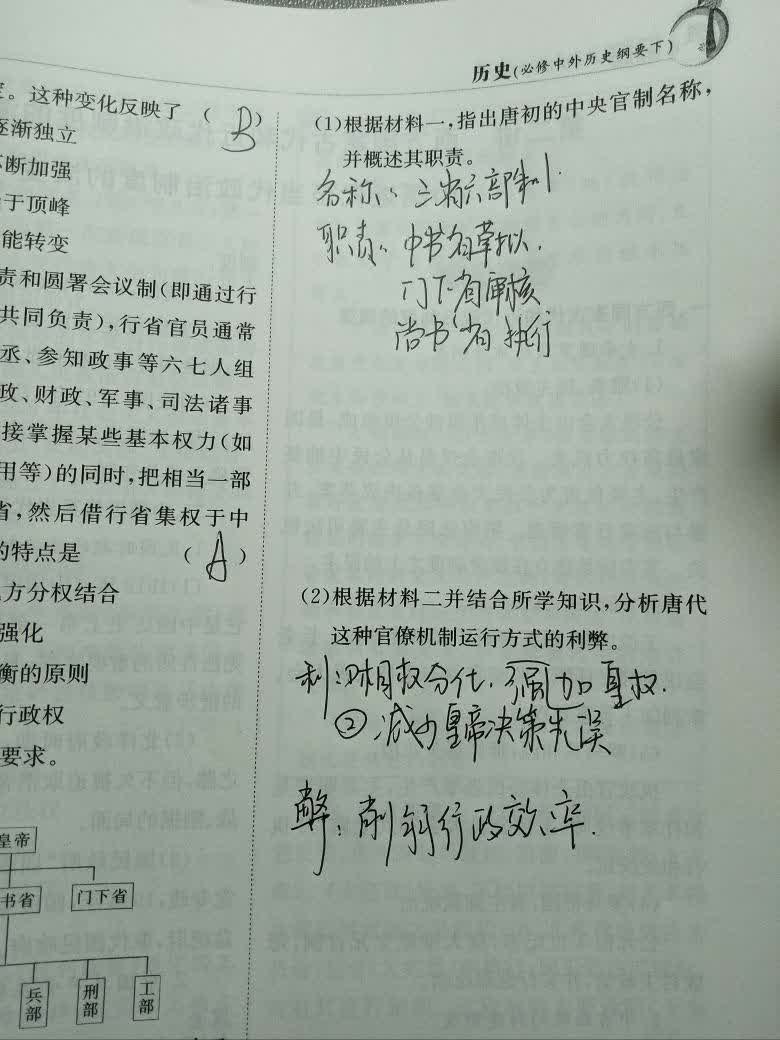 历史(必修中外历史纲要下)
。这种变化反映了 ( B )
逐渐独立
不断加强
于顶峰
能转变
责和圆署会议制(即通过行
共同负责),行省官员通常
丞、参知政事等六七人组
政、财政、军事、司法诸事
接掌握某些基本权力(如
用等)的同时,把相当一部
省,然后借行省集权于中
的特点是 ( A )
方分权结合
强化
衡的原则
行政权
要求。
皇帝
书省
门下省
兵部
刑部
工部
(1)根据材料一,指出唐初的中央官制名称,
并概述其职责。
名称:三省六部制.
职责:中书省草拟.
门下省审核
尚书省执行
(2)根据材料二并结合所学知识,分析唐代
这种官僚机制运行方式的利弊。
利:①相权分化.强加皇权.
②减少皇帝决策失误
弊:削弱行政效率.